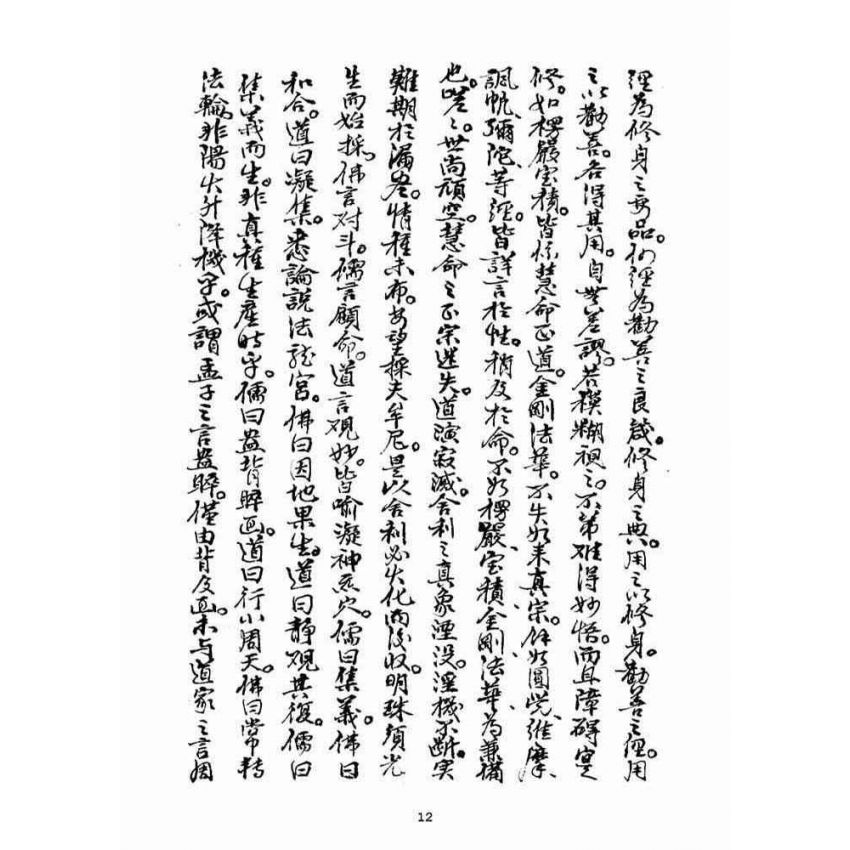 經為修身之妙品。何經為勸善之良箴。修身之典。用之以修身。勸善之經。用
之以勸善。各得其用。自無差謬。若模糊視之。不第難得妙悟。而且障礙寔
修。如楞嚴寶積。皆係慧命正道。金剛法華。不失如來真宗。餘如圓覺、維摩、
諷帆彌陀等經。皆詳言於性。稍及於命。不如楞嚴、寶積、金剛、法華、為兼備
也。嗟之。世尚頑空。慧命之正宗迷失。道演寂滅。舍利之真象湮没。淫機不斷。寔
難期於漏盡。情種未布。安望採夫牟尼。是以舍利必火化而後收。明珠須光
生而始採。佛言对斗。儒言顧命。道言观妙。皆喻凝神炁穴。儒曰集義。佛曰
和合。道曰凝集。悉論說法龍宮。佛曰因地果生。道曰静观其復。儒曰
集義而生。非真種生產時乎。儒曰盎背睟面。道曰行小周天。佛曰常轉
法輪。非陽火升降機乎。或謂孟子之言盎睟。僅由背及面。未与道家之言周
12